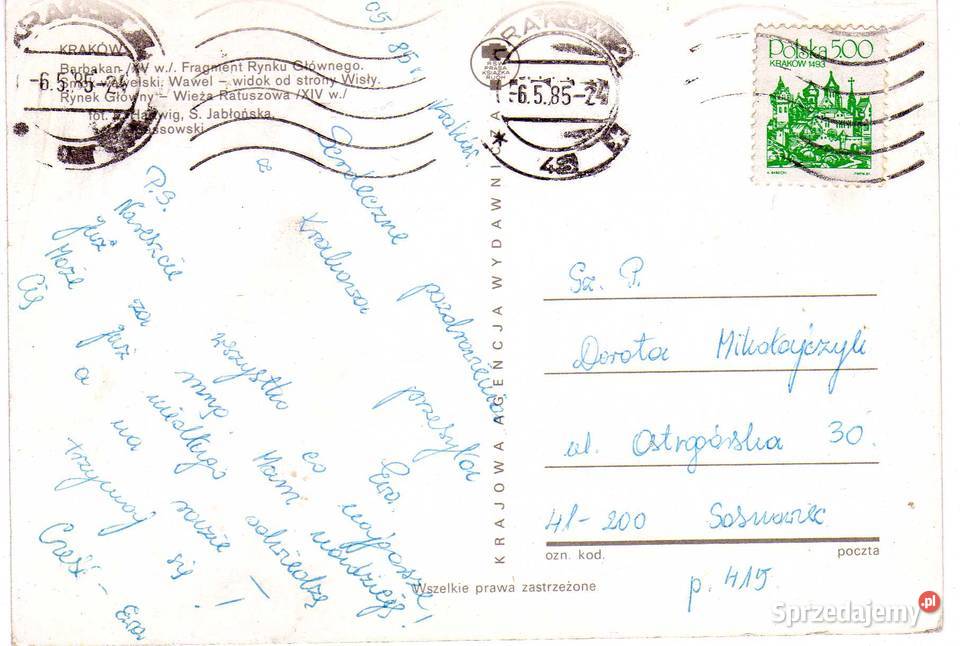 KRAKÓW
Barbakan /XV w./. Fragment Rynku Głównego.
Smok Wawelski. Wawel – widok od strony Wisły.
Rynek Główny – Wieża Ratuszowa /XIV w./
fot. Hartwig, S. Jabłońska,
KRAKÓW
-6.5.85-24
KRAKÓW
-6.5.85-24
Polska 500
KRAKÓW 1493
RSW
PRASA
KSIĄŻKA
RUCH
KRAJOWA AGENCJA WYDAWNICZA
05
85 r
Kraków.
Serdeczne pozdrowienia
z Krakowa przesyła
Ewa.
P.S.
Nareszcie wszystko co najgorsze
już za mną. Mam nadzieję!
Może już niedługo odwiedzę
Cię a na razie –
trzymaj się!
Cześć – Ewa
Sz. P.
Dorota Mikołajczyk
ul. Ostrogórska 30.
41-200 Sosnowiec
ozn. kod. poczta
p. 415
Wszelkie prawa zastrzeżone
Sprzedajemy.pl